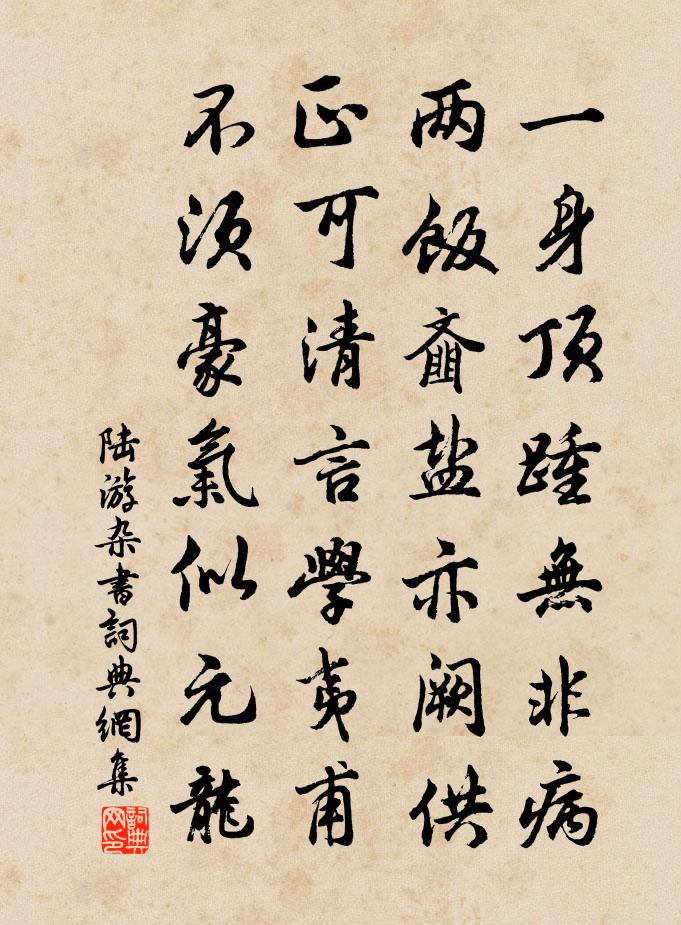 一身頂踵無非病
两飯齑盐亦阙供
正可清言學夷甫
不須豪氣似元龍
陆游杂書詞典網集
詞典网印